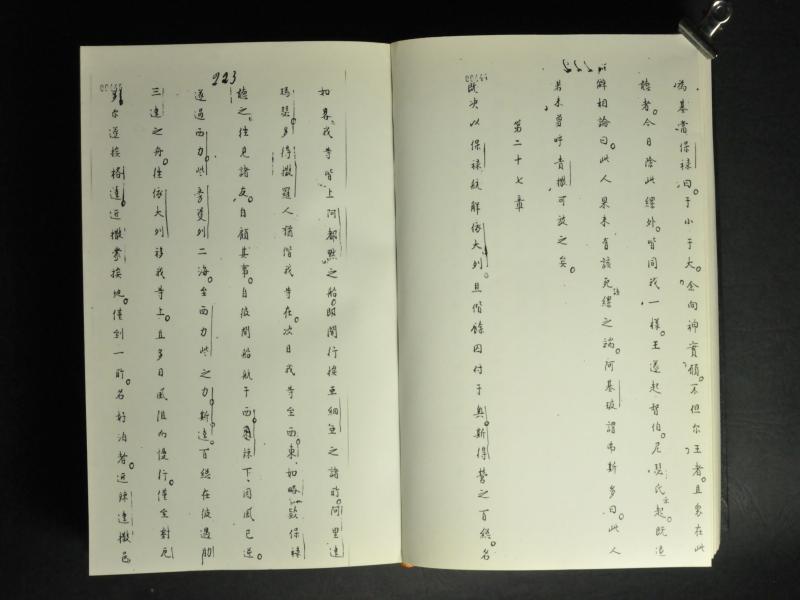 為基當保祿曰于小于大余向神實願不但尔王者且衆在此
聽者今日除此縲外皆同我一樣王遂起督伯尼瑟氏亦起既退
僻相論曰此人果未有該死縲之端阿基玻謂弗斯多曰此人
若未曾呼責撒可放之矣
第二十七章
既决以保祿航解依大列且偕餘囚付于奥斯得營之百總名
223
如畧我等皆上阿都點之船即開行挨亜細亜之諸所阿里達
瑪瑟多得撒羅人猶偕我等在次日我等至西東如略欵保祿
聽之往見諸友自顧其事自彼開船航于西羅球下因風已逆
遂過西力些旁蔓列二海至西力些之力斯達百總在彼遇
三達之舟往依大列移我等上且多日風阻而慢行僅至對尼
對尔遂挨格達近撒蒙挨地僅到一所名好泊者近球達撒邑